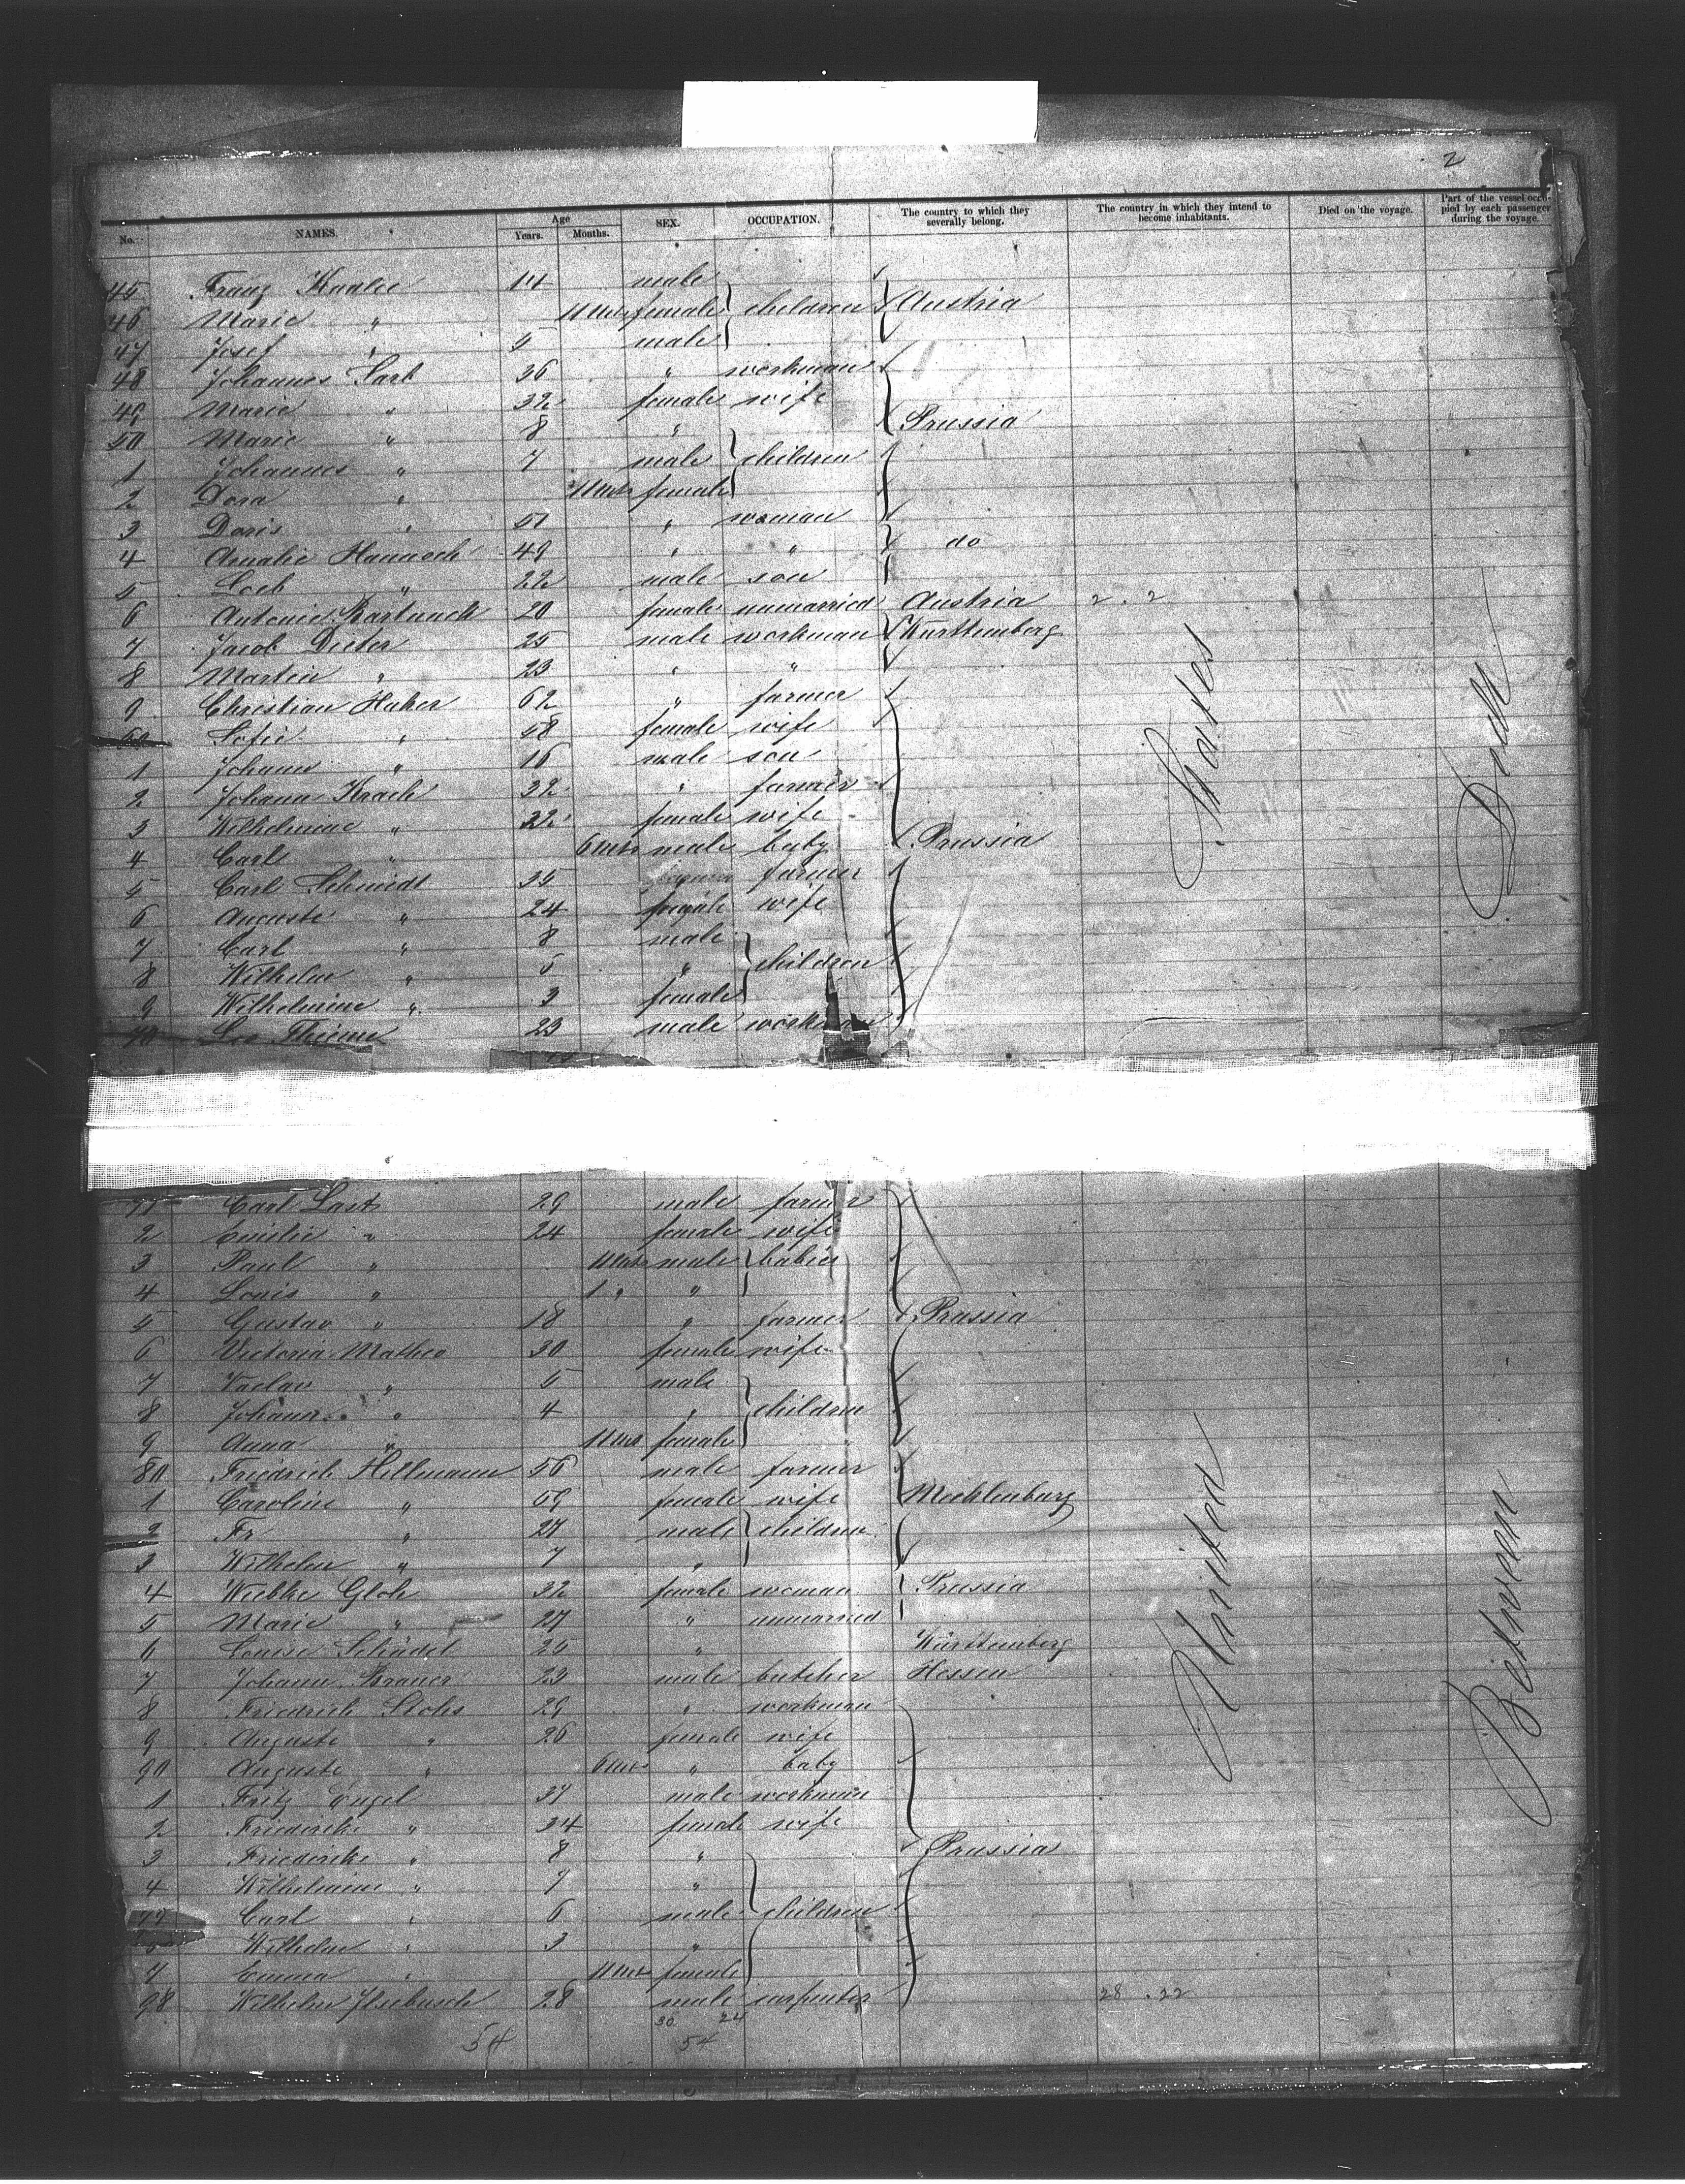 2
No. NAMES. Age Years. Months. SEX. OCCUPATION. The country to which they severally belong. The country in which they intend to become inhabitants. Died on the voyage. Part of the vessel occupied by each passenger during the voyage.
45 Franz 14 male
46 Marie " 11 Mts female children Austria
47 Josef " 5 male
48 Johannes 36 " workman
49 Marie " 32 female wife
50 Marie " 8 " Prussia
1 Johannes " 7 male children
2 Dora " 11 Mts female
3 Doris " 51 " woman
4 Amalie 49 " " do
5 Loeb " 22 male son
6 Antonie 20 female unmarried Austria 2 . 2
7 Jacob Dieter 25 male workman Württemberg
8 Martin " 23 " "
9 Christian Huker 62 " farmer
60 Sofie " 58 female wife
1 Johann " 16 male son
2 Johann 32 " farmer
3 Wilhelmine " 32 female wife
4 Carl " 6 Mts male baby Prussia
5 Carl Schmidt 35 farmer
6 Auguste " 24 female wife
7 Carl " 8 male
8 Wilhelm " 5 " children
9 Wilhelmine " 3 female
70 Thieme 23 male workman
71 Carl Last 29 male farmer
2 Emilie " 24 female wife
3 Paul " 11 Mts male babies
4 Louis " 1 " "
5 Gustav " 18 " farmer Prussia
6 Victoria 30 female wife
7 Vaclav " 5 male
8 Johann " 4 " children
9 Anna " 11 Mts female
80 Friedrich Hellmann 56 male farmer
1 Caroline " 59 female wife Mecklenburg
2 Fr " 27 male children
3 Wilhelm " 7 "
4 Wiebke Gloh 32 female woman Prussia
5 Marie " 27 " unmarried
6 Louise Schädel 25 " Württemberg
7 Johann 23 male butcher Hessen
8 Friedrich 29 " workman
9 Auguste " 26 female wife
90 Auguste " 6 Mts " baby
1 Fritz Engel 37 male workman
2 Friederike " 34 female wife
3 Friederike " 8 " Prussia
4 Wilhelmine " 7 "
Carl " 6 male children
Wilhelm " 3 "
7 Emma " 11 Mts female
98 Wilhelm 28 male carpenter 28 . 22
30 24
54 54
United States
Between Deck